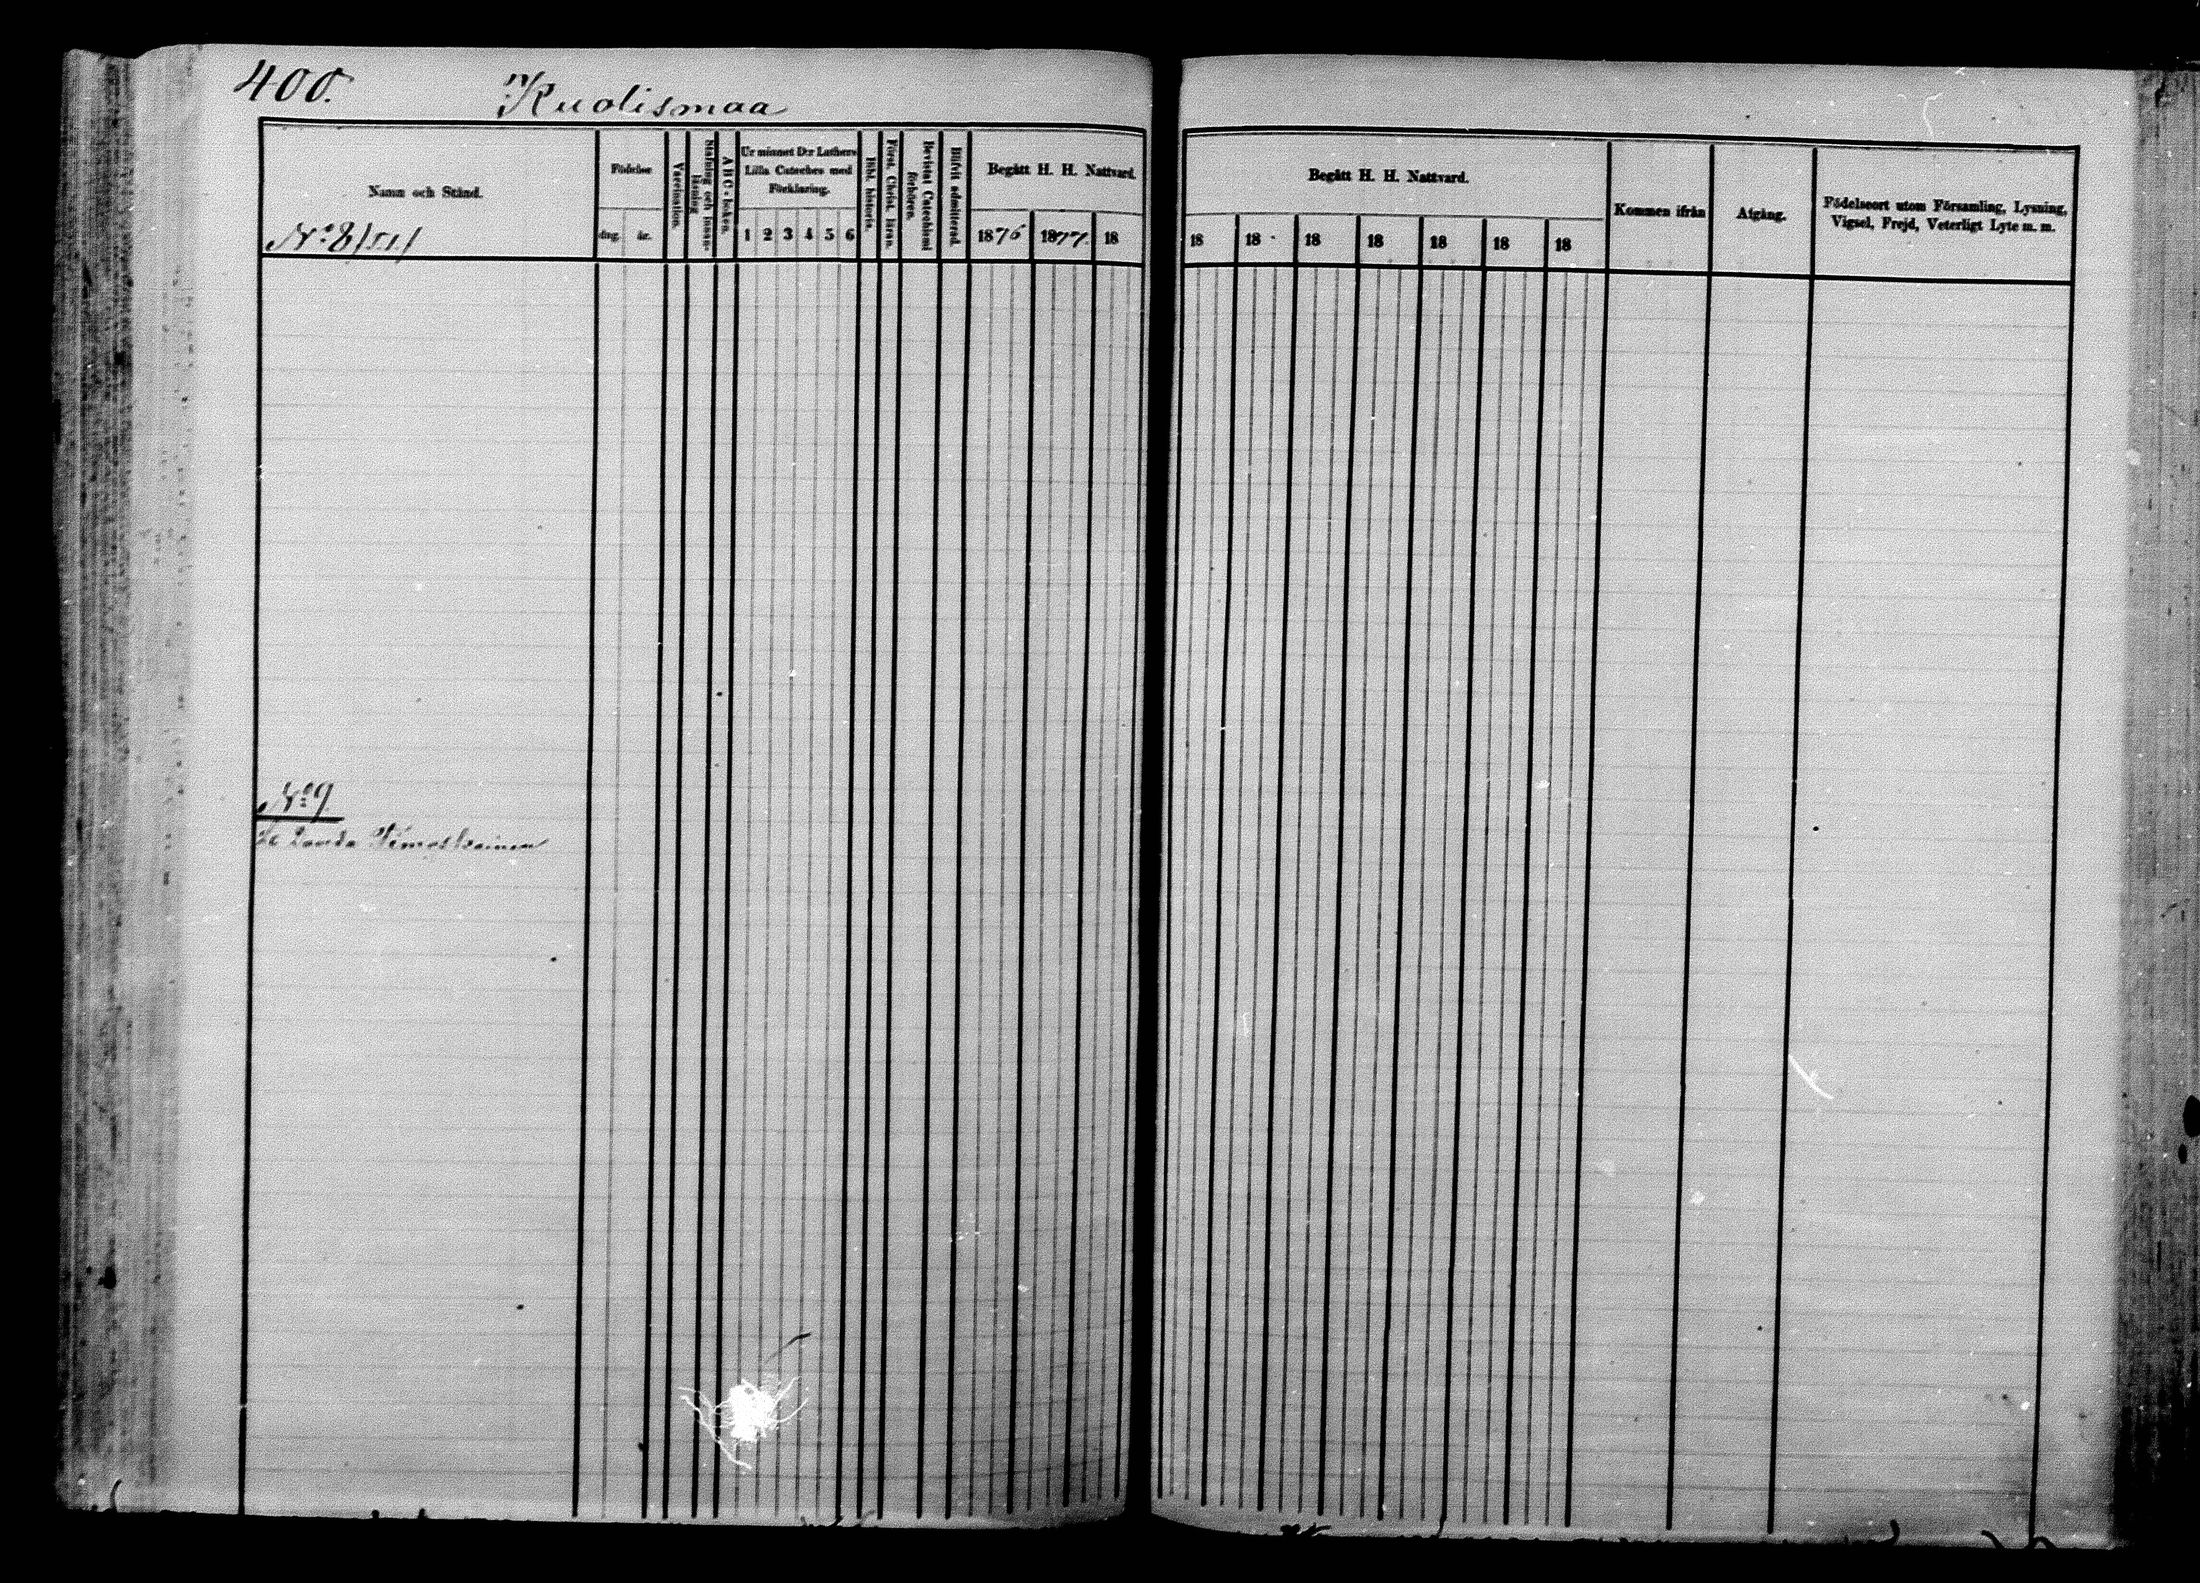 400.
Kuolismaa
Namn och Stånd.
No 8/51/
Födelse
dag. år.
Vaccination.
Stafning och innan-
läsning
A B C-boken.
Ur minnet D:r Luthers
Lilla Cateches med
Förklaring.
1 2 3 4 5 6
Bibl. historia.
Först. Christ. läran.
Bevistat Catechismi
förhören.
Blifvit admitterad.
Begått H. H. Nattvard.
1876 1877. 18
Begått H. H. Nattvard.
18 18 18 18 18 18 18
Kommen ifrån
Afgång.
Födelseort utom Församling, Lysning,
Vigsel, Frejd, Veterligt Lyte m. m.
No 9